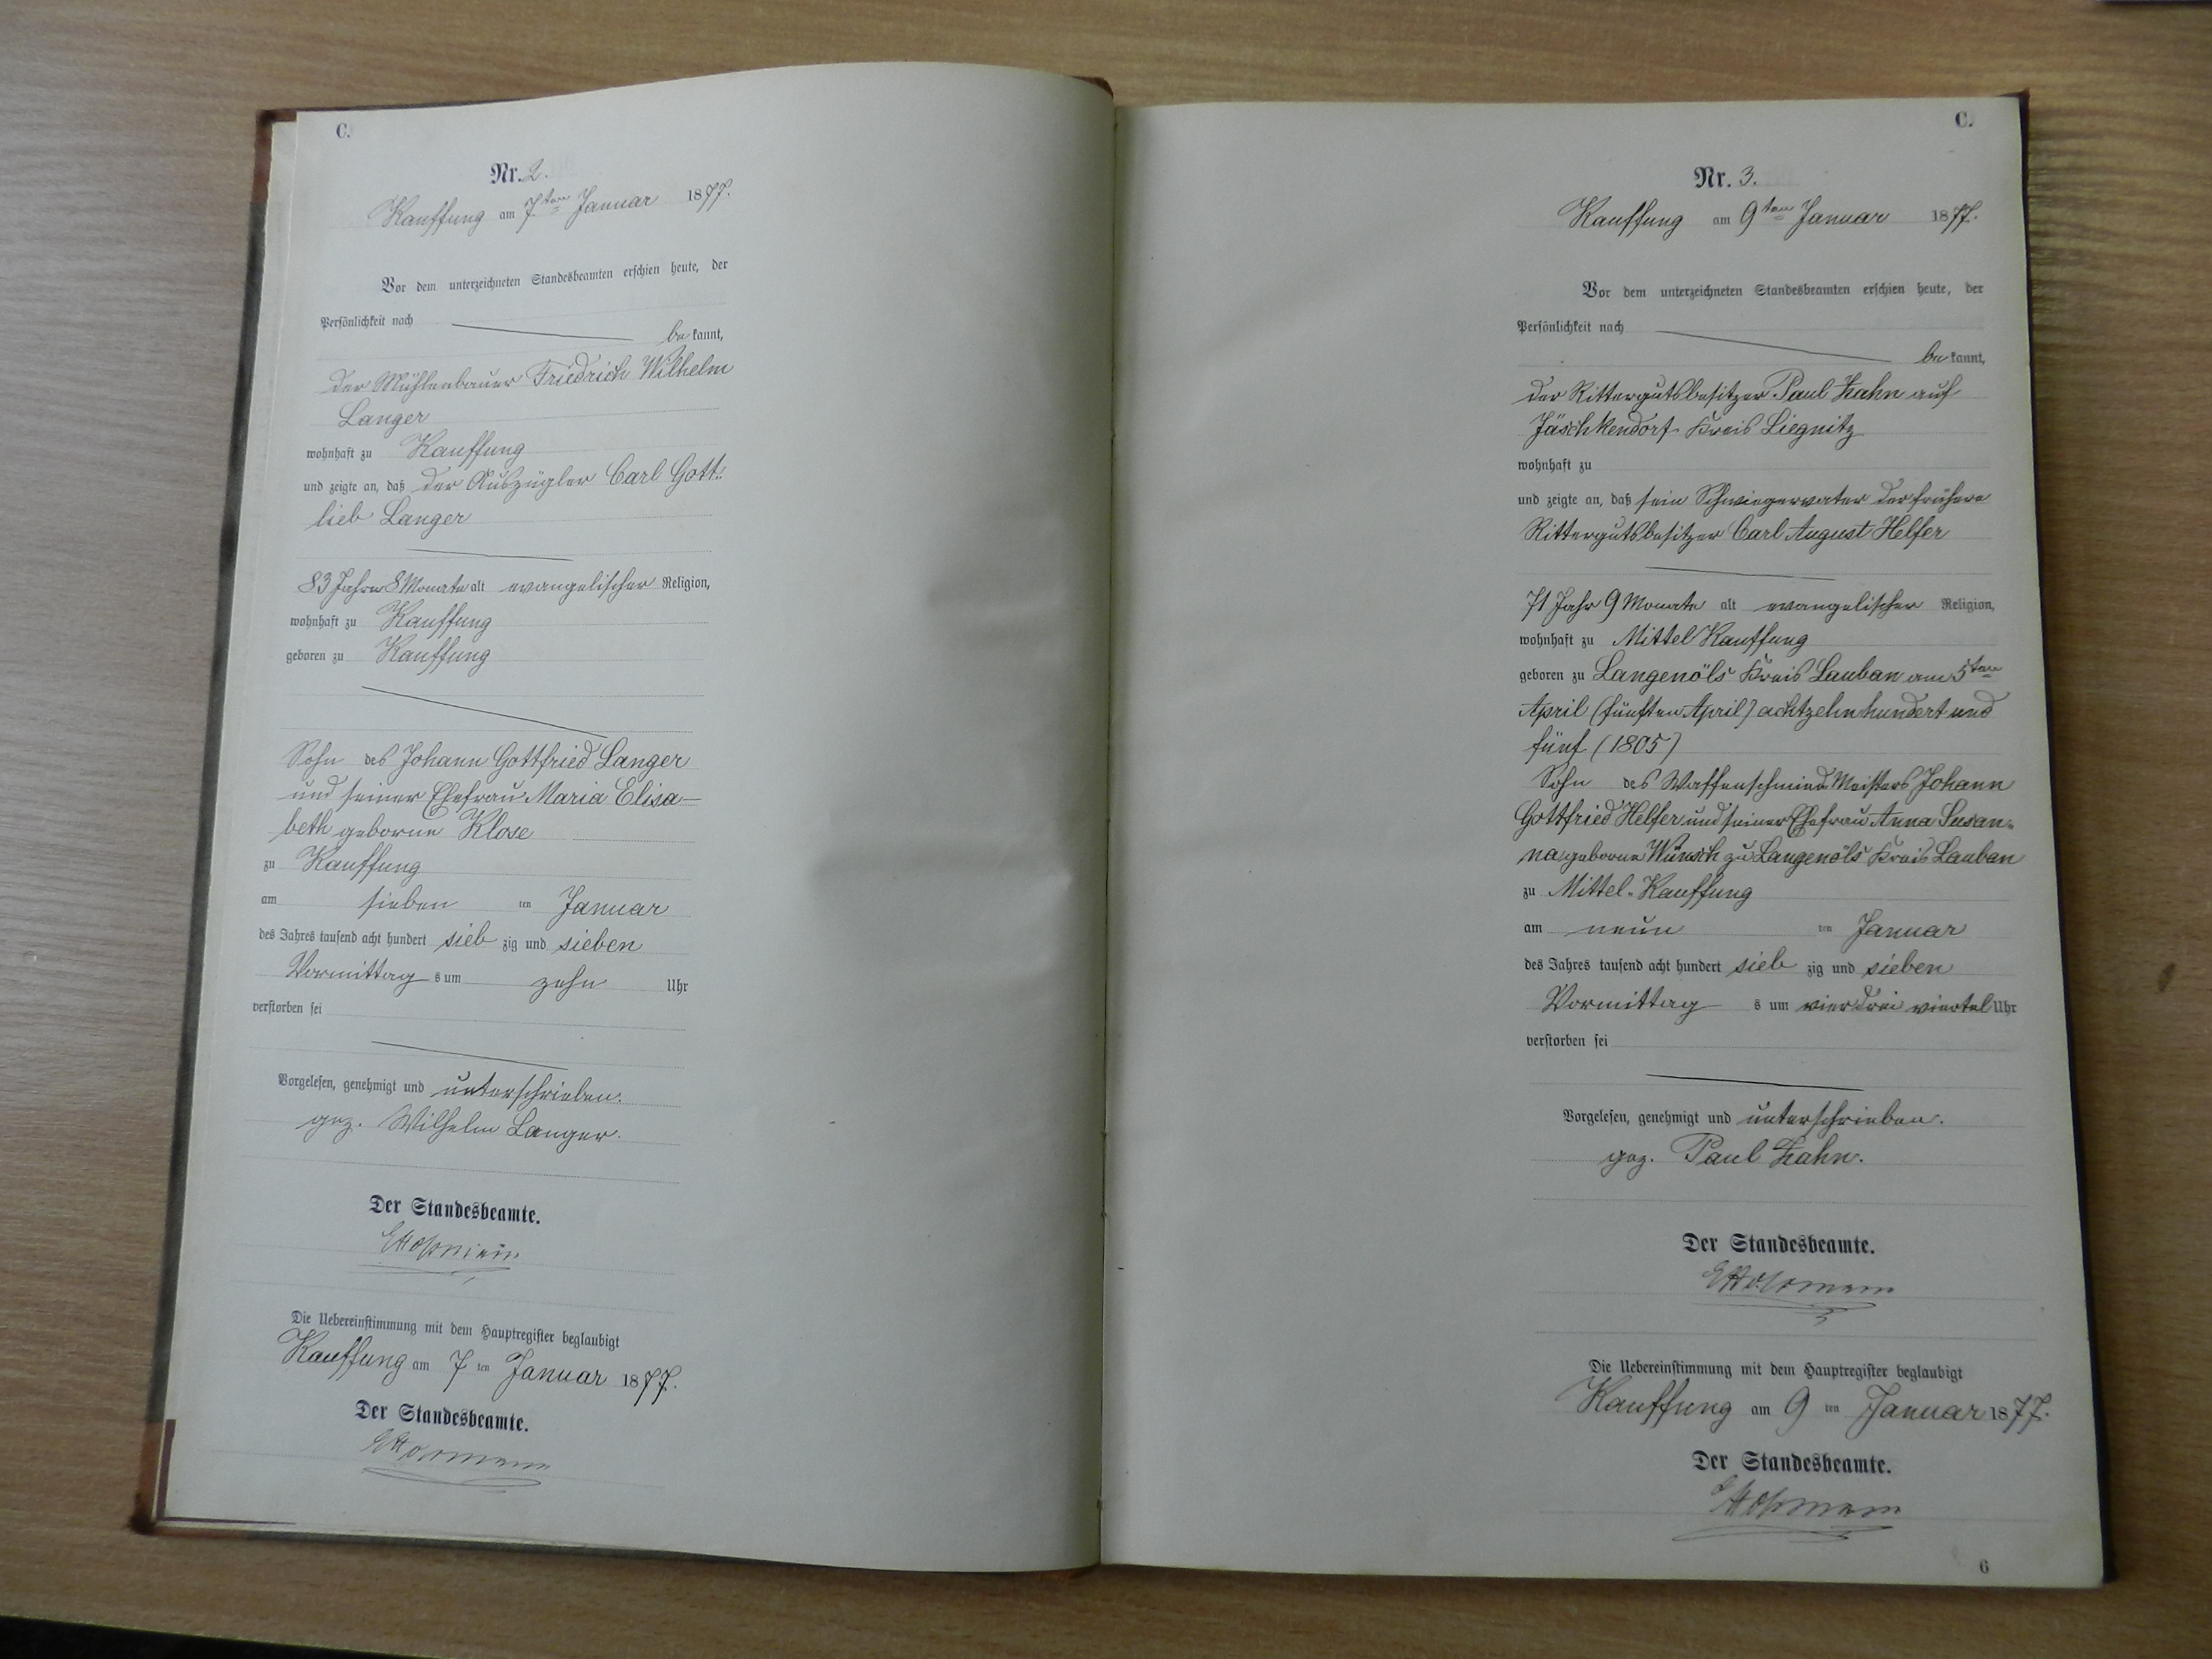 C.
Nr. 2.
Kauffung am 7ten Januar 1877.
Vor dem unterzeichneten Standesbeamten erschien heute, der
Persönlichkeit nach
be kannt,
der Mühlenbauer Friedrich Wilhelm
Langer
wohnhaft zu Kauffung
und zeigte an, daß der Auszügler Carl Gott-
lieb Langer
83 Jahre 8 Monate alt evangelischer Religion,
wohnhaft zu Kauffung
geboren zu Kauffung
Sohn des Johann Gottfried Langer
und seiner Ehefrau Maria Elisa-
beth geborne Klose
zu Kauffung
am sieben ten Januar
des Jahres tausend acht hundert sieb zig und sieben
Vormittag s um zehn Uhr
verstorben sei
Vorgelesen, genehmigt und unterschrieben.
gez. Wilhelm Langer.
Der Standesbeamte.
Die Uebereinstimmung mit dem Hauptregister beglaubigt
Kauffung am 7 ten Januar 1877.
Der Standesbeamte.
C.
Nr. 3.
Kauffung am 9ten Januar 1877.
Vor dem unterzeichneten Standesbeamten erschien heute, der
Persönlichkeit nach
be kannt,
der Rittergutsbesitzer Paul Hahn auf
Jäschkendorf Kreis Liegnitz
wohnhaft zu
und zeigte an, daß sein Schwiegervater der frühere
Rittergutsbesitzer Carl August Helfer
71 Jahr 9 Monate alt evangelischer Religion,
wohnhaft zu Mittel Kauffung
geboren zu Langenöls Kreis Lauban am 5ten
April (fünften April) achtzehnhundert und
fünf (1805)
Sohn des Waffenschmied Meisters Johann
Gottfried Helfer und seiner Ehefrau Anna Susan-
na geborne Wünsch zu Langenöls Kreis Lauban
zu Mittel-Kauffung
am neun ten Januar
des Jahres tausend acht hundert sieb zig und sieben
Vormittag s um vier drei viertel Uhr
verstorben sei
Vorgelesen, genehmigt und unterschrieben.
gez. Paul Hahn.
Der Standesbeamte.
Die Uebereinstimmung mit dem Hauptregister beglaubigt
Kauffung am 9 ten Januar 1877.
Der Standesbeamte.
6